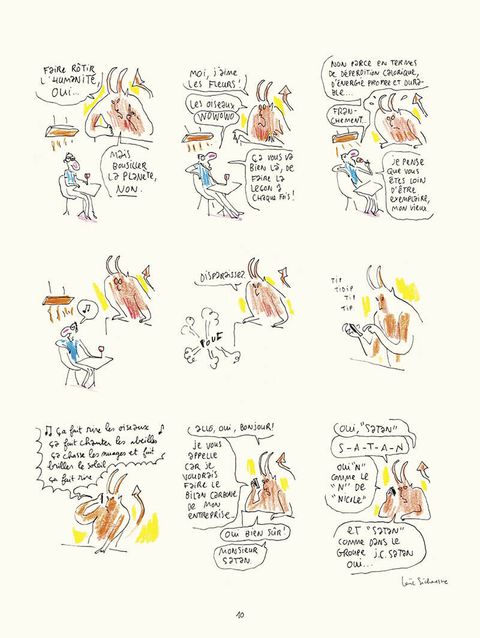 FAIRE RÔTIR
L'HUMANITÉ,
OUI...
MAIS
BOUSILLER
LA PLANÈTE,
NON.
MOI, J'AIME
LES FLEURS!
LES OISEAUX
WOWOWO
ÇA VOUS VA
BIEN LÀ, DE
FAIRE LA
LEÇON À
CHAQUE FOIS!
NON PARCE EN TERMES
DE DÉPERDITION CALORIQUE,
D'ÉNERGIE PROPRE ET DURA-
BLE...
FRAN-
CHEMENT...
JE PENSE
QUE VOUS
ÊTES LOIN
D'ÊTRE
EXEMPLAIRE,
MON VIEUX
DISPARAISSEZ.
POUF
TIP
TIDIP
TIP
TIP
ça fait rire les oiseaux
ça fait chanter les abeilles
ça chasse les nuages et fait
briller le soleil
ça fait rire
ALLO, OUI, BONJOUR!
JE VOUS
APPELLE
CAR JE
VOUDRAIS
FAIRE LE
BILAN CARBONE
DE MON
ENTREPRISE
OUI BIEN SÛR!
MONSIEUR
SATAN.
OUI, "SATAN"
S-A-T-A-N
OUI "N"
COMME LE
"N" DE
"NICOLE"
ET "SATAN"
COMME DANS LE
GROUPE J.C. SATAN
OUI...
10